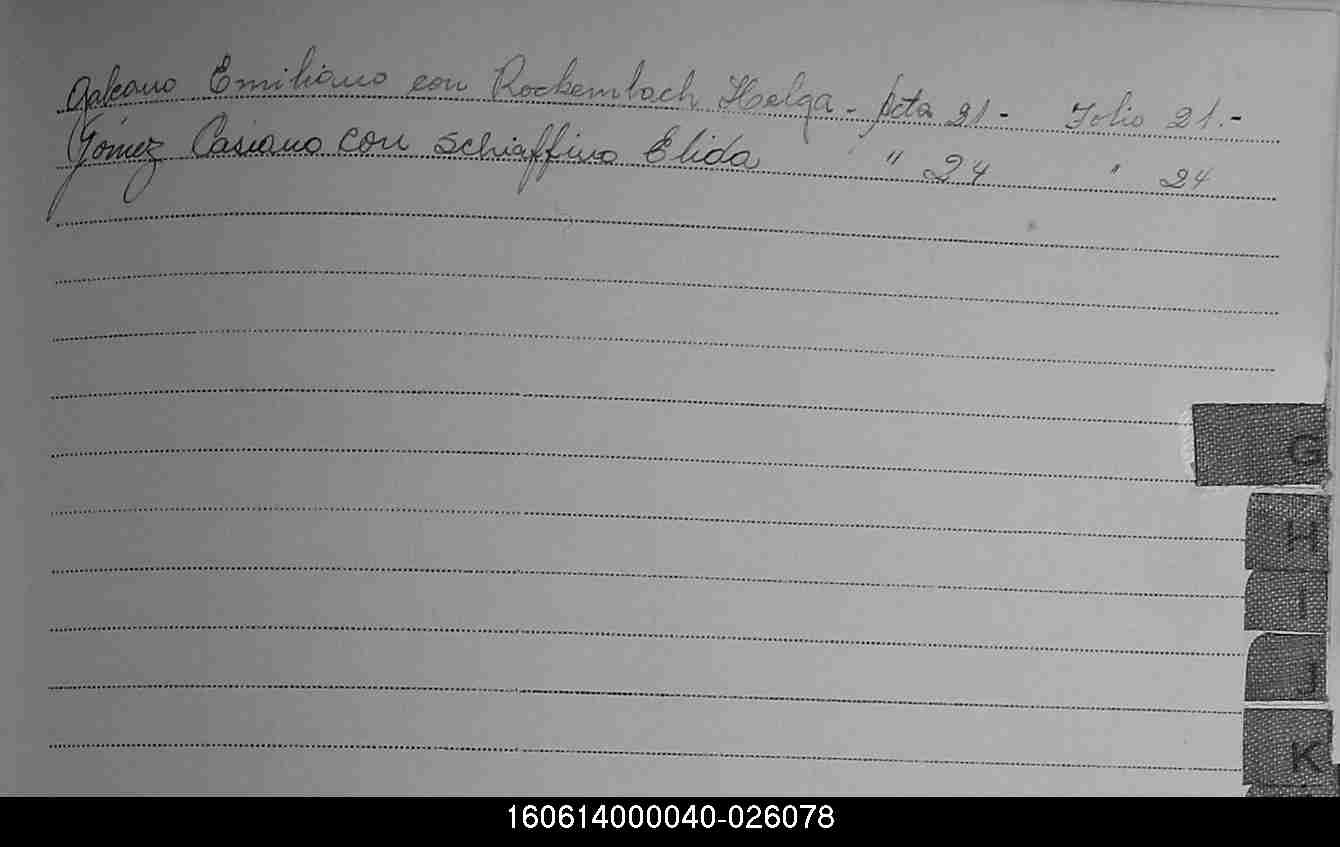 Galeano Emiliano con Rockembach Helga - Acta 21 - Folio 21.-
Gómez Casiano con Schiaffino Elida " 24 " 24
G
H
I
J
K
160614000040-026078